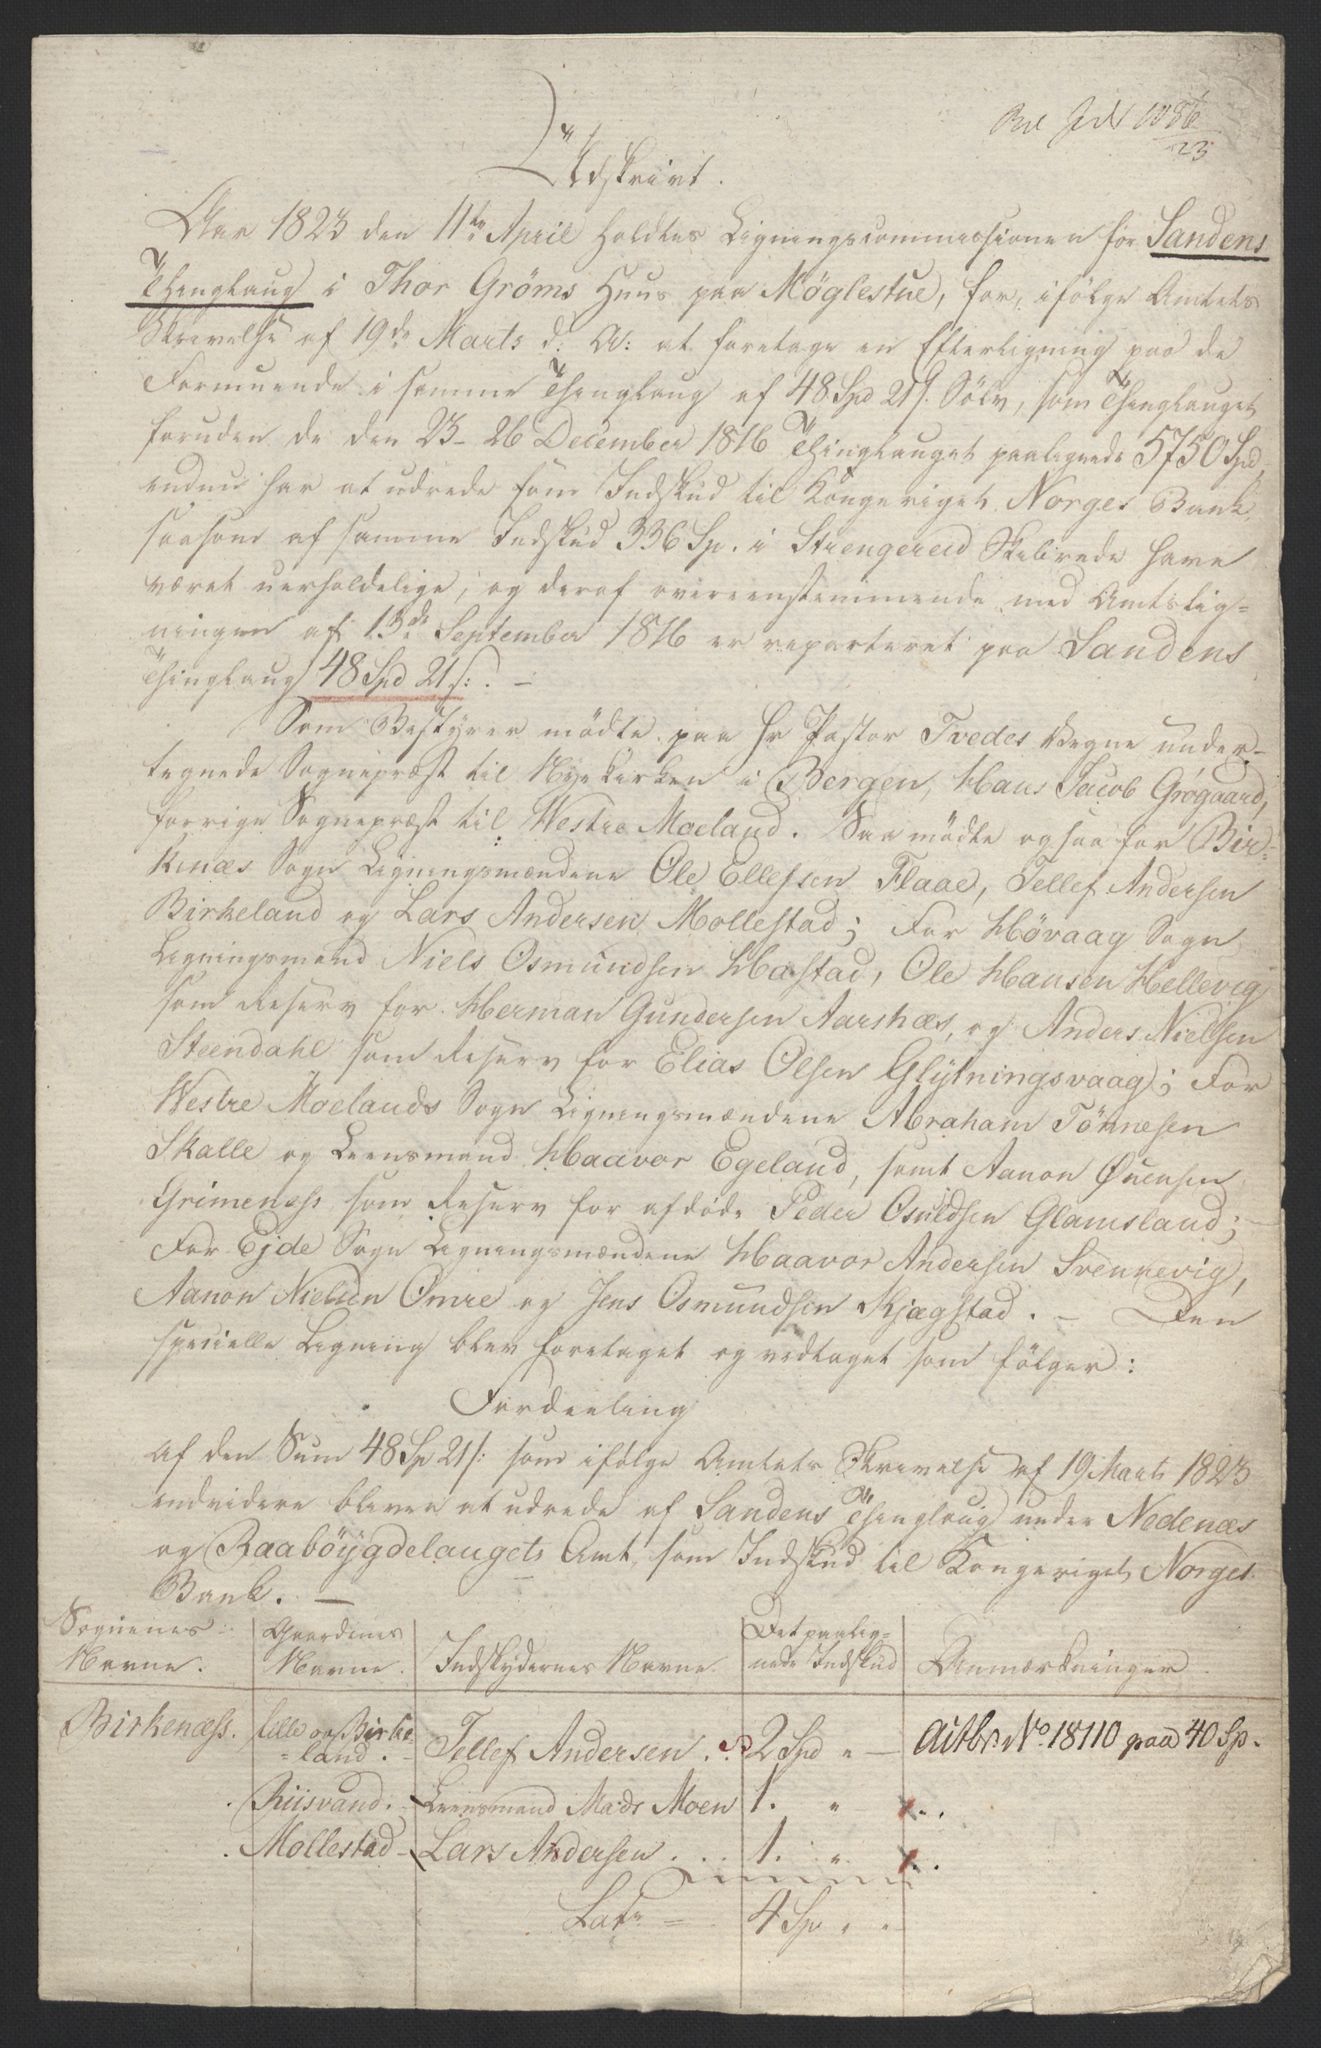 1086
23
Udskrivt.
Aar 1823 den 11te April holdtes Ligningscommissionen for Sandens
Thinglaug i Thor Gröms Huus paa Möglestue, for, ifølge Amtets
Skrivelse af 19de Marts d: A: at foretage en Efterligning paa de
Formuende i samme Thinglaug af 48 Spd 21 s. Sölv, som Thinglauget
foruden de den 23-26 December 1816 Thinglauget paalignede 5750 Spd,
endnu har at udrede som Indskud til Kongeriget Norges Bank
saasom af samme Indskud 336 Sp. i Strengereid Skibrede have
været uerholdelige, og deraf overeenstemmende med Amtslig=
ningen af 13de September 1816 er reparteret paa Sandens
Thinglaug 48 Spd 21 s: . —
Som Bestyrer mödte paa Hr Pastor Tvedes Vegne under-
tegnede Sognepræst til Nyekirken i Bergen, Hans Jacob Grögaard,
forrige Sognepræst til Westre Moeland. Saa mödte ogsaa for Bir=
kenæs Sogn Ligningsmændene Ole Ellefsen Flaae, Tellef Andersen
Birkeland og Lars Andersen Mollestad; For Hövaag Sogn
Ligningsmand Niels Osmundsen Hæstad, Ole Hansen Hellevig
som Reserv for Herman Gundersen Aarsnæs, og Anders Nielsen
Steendahl som Reserv for Elias Olsen Glytningsvaag; For
Westre Moelands Sogn Ligningsmændene Abraham Tönnesen
Skalle og Leensmand Haavor Egeland, samt Aanon Ouensen
Grimenæss som Reserv for afdöde Peder Osuldsen Glamsland; —
For Ejde Sogn Ligningsmændene Haavor Andersen Svennevig,
Aanon Nielsen Omre og Jens Osmundsen Kjagstad. — Den
specielle Ligning blev foretaget og vedtaget som fölger:
Fordeeling
af den Sum 48 Sp 21 s: som ifölge Amtets Skrivelse af 19 Marts 1823
endvidere bliver at udrede af Sandens Thinglaug under Nedenæs
og Raaböygdelaugets Amt, som Indskud til Kongeriget Norges
Bank. —
Sognenes Navne. Gaardenes Navne. Indskydernes Navne. Det paalig=nede Indskud Anmærkninger.
Birkenæss. Lille og Birke=land. Tellef Andersen . . 2 Spd " — Aitbr No. 18110 paa 40 Sp.
Riisvand. Leensmand Mads Moen 1. " x . .
Mollestad - Lars Andersen . . . 1. " x . .
Latr — 4 Sp " "